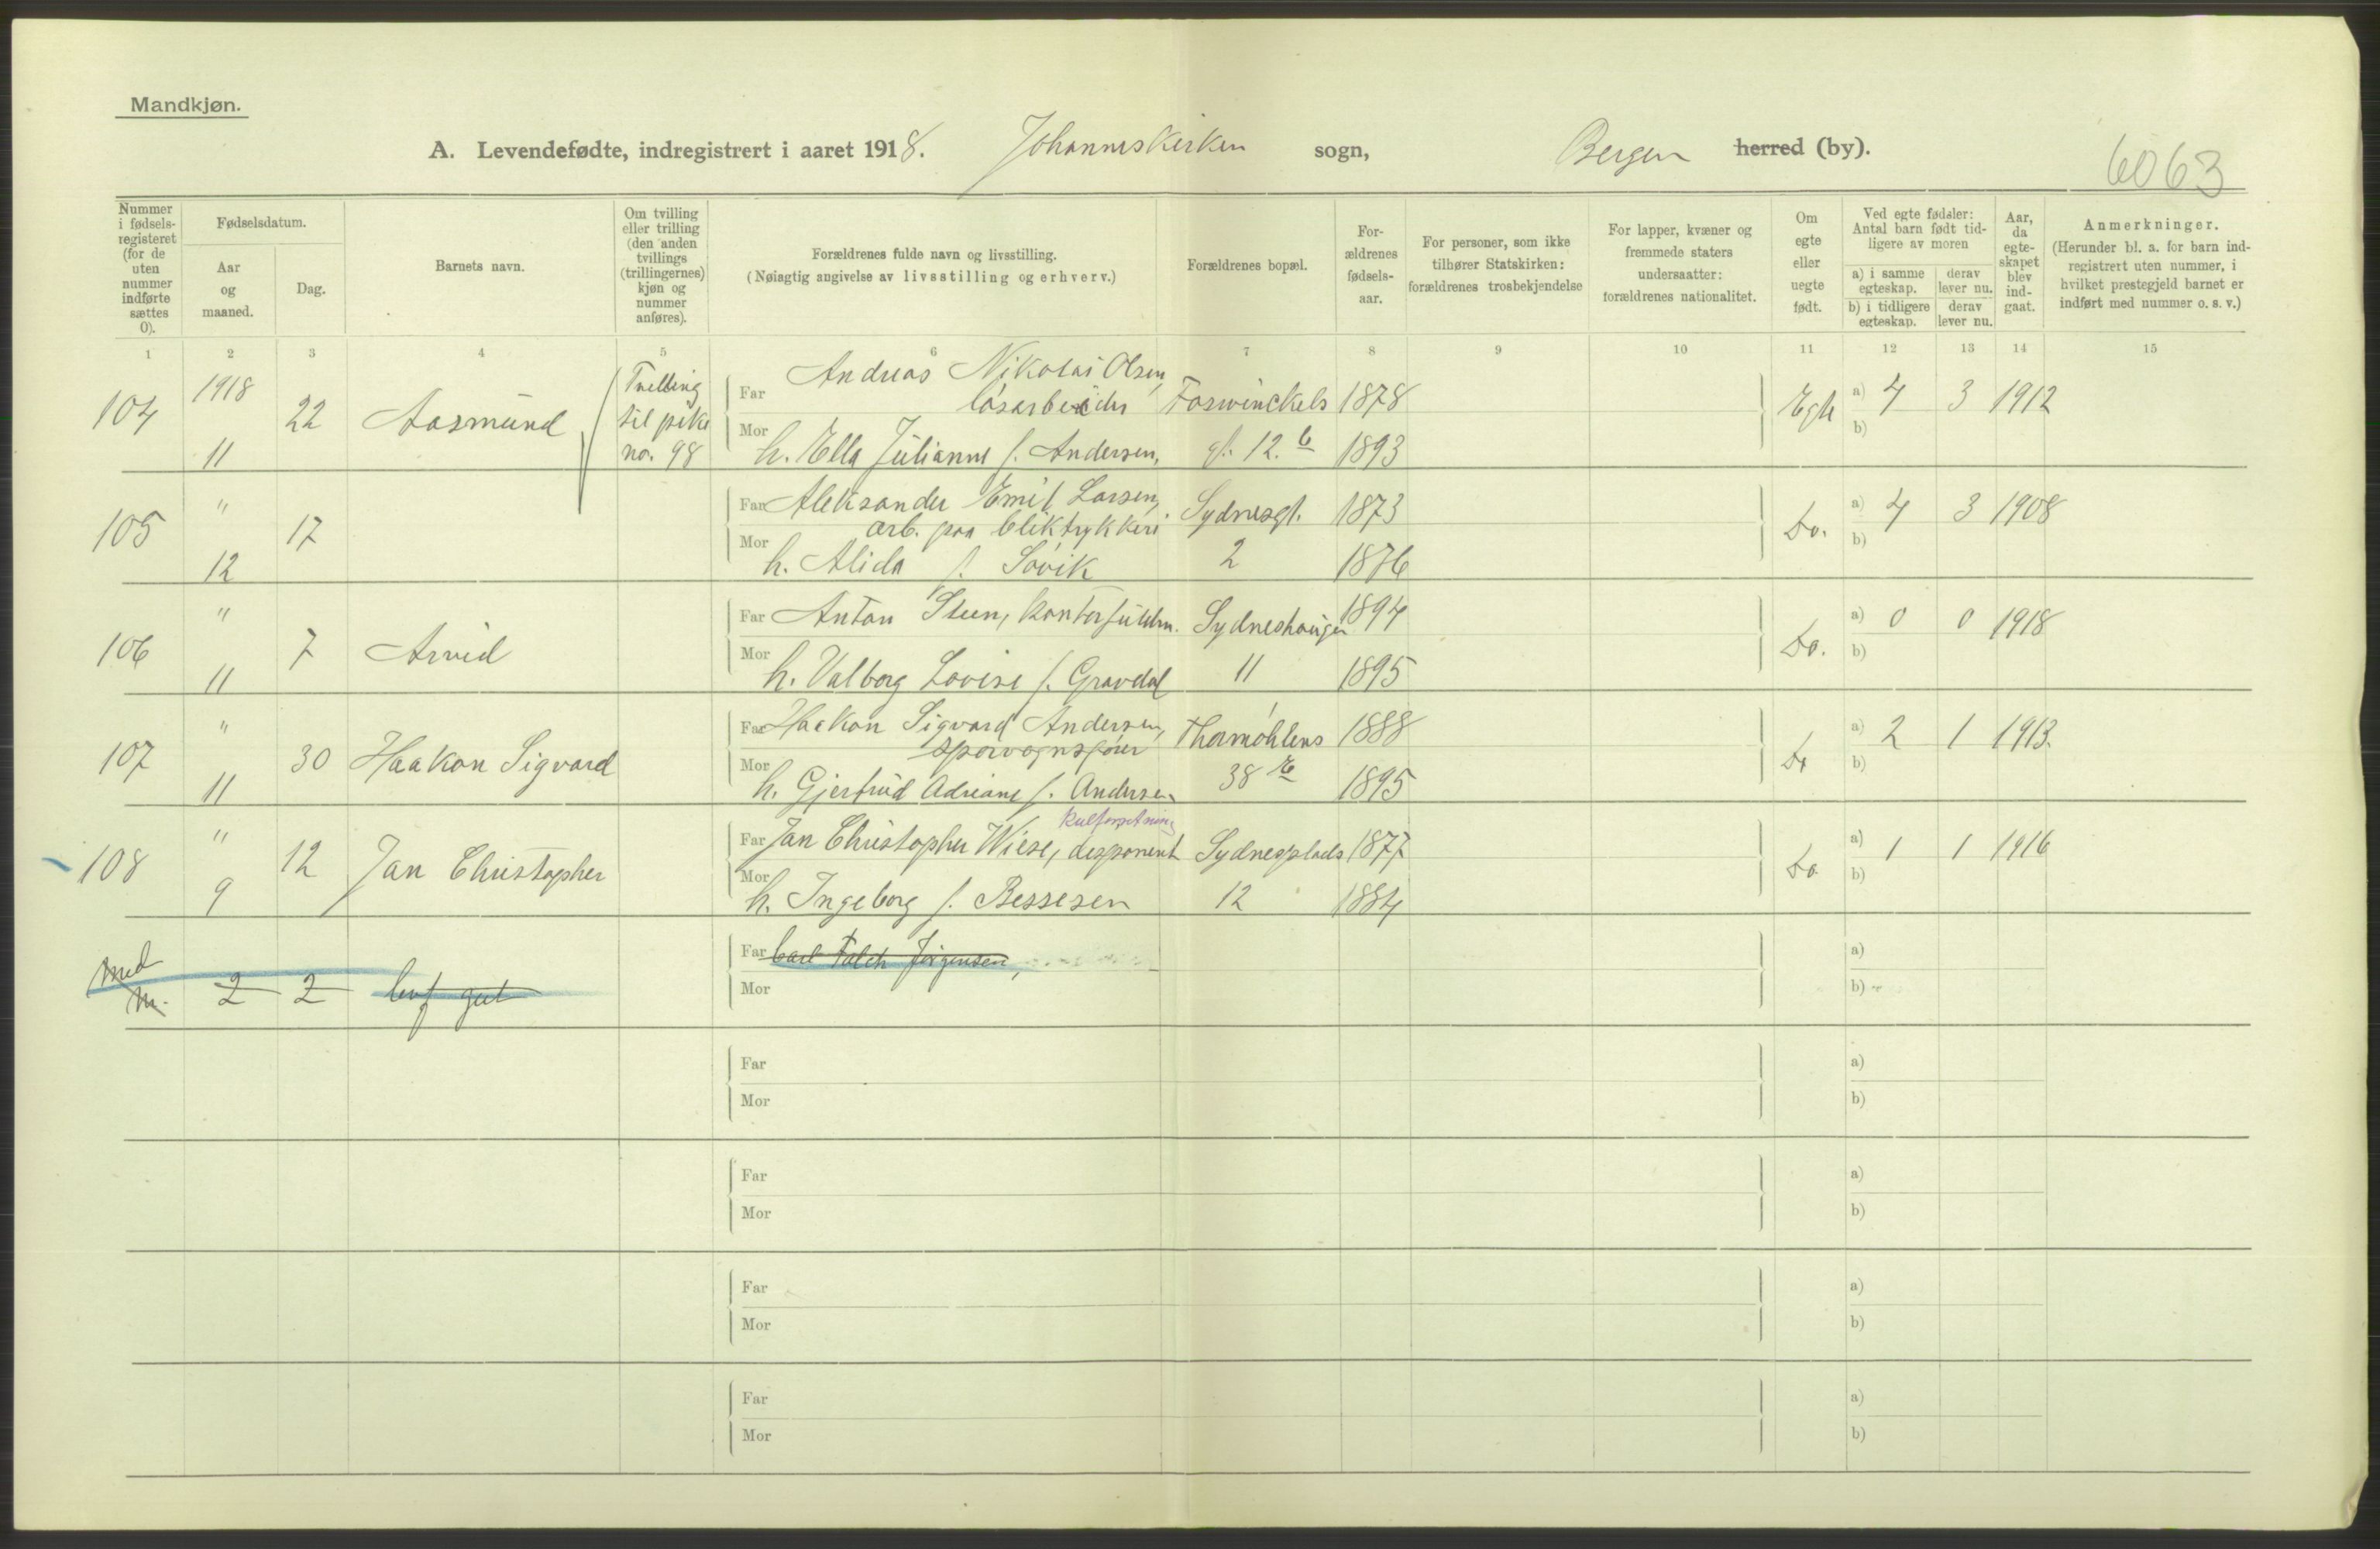 Mandkjøn.
A. Levendefødte, indregistrert i aaret 1918. Johanneskirken sogn, Bergen herred (by).
6063
Nummer i fødselsregisteret (for de uten nummer indførte sættes 0).
Fødselsdatum.
Aar og maaned.
Dag.
Barnets navn.
Om tvilling eller trilling (den anden tvillings (trillingernes) kjøn og nummer anføres).
Forældrenes fulde navn og livsstilling.
(Nøiagtig angivelse av livsstilling og erhverv.)
Forældrenes bopæl.
Forældrenes fødselsaar.
For personer, som ikke tilhører Statskirken: forældrenes trosbekjendelse
For lapper, kvæner og fremmede staters undersaatter: forældrenes nationalitet.
Om egte eller uegte født.
Ved egte fødsler: Antal barn født tidligere av moren
a) i samme egteskap.
derav lever nu.
b) i tidligere egteskap.
derav lever nu.
Aar, da egteskapet blev indgaat.
Anmerkninger.
(Herunder bl. a. for barn indregistrert uten nummer, i hvilket prestegjeld barnet er indført med nummer o. s. v.)
1 2 3 4 5 6 7 8 9 10 11 12 13 14 15
104 1918 11 22 Aasmund Tvilling til pike no. 98
Far Andreas Nikolai Olsen, løsarbeider Foswinckels 1878 Egte a) 4 3 1912
Mor h. Ella Julianne f. Andersen, gt. 12.b 1893 b)
105 " 12 17
Far Aleksander Emil Larsen, arb. paa bliktrykkeri Sydnesgt. 1873 Do. a) 4 3 1908
Mor h. Alida f. Søvik 2 1876 b)
106 " 11 7 Arvid
Far Anton Steen, kontorfuldm. Sydneshaugen 1894 Do. a) 0 0 1918
Mor h. Valborg Lovise f. Gravdal 11 1895 b)
107 " 11 30 Haakon Sigvard
Far Haakon Sigvard Andersen, sporvognsfører Thormøhlens 1888 Do a) 2 1 1913.
Mor h. Gjertrud Adriane f. Andersen 38 E 1895 b)
kulforretning
108 " 9 12 Jan Christopher
Far Jan Christopher Wiese, disponent Sydnesplads 1877 Do a) 1 1 1916
Mor h. Ingeborg f. Bessesen 12 1884 b)
med m. 2 2 levf gut
Far Carl Falch Jørgensen, a)
Mor b)
Far a)
Mor b)
Far a)
Mor b)
Far a)
Mor b)
Far a)
Mor b)